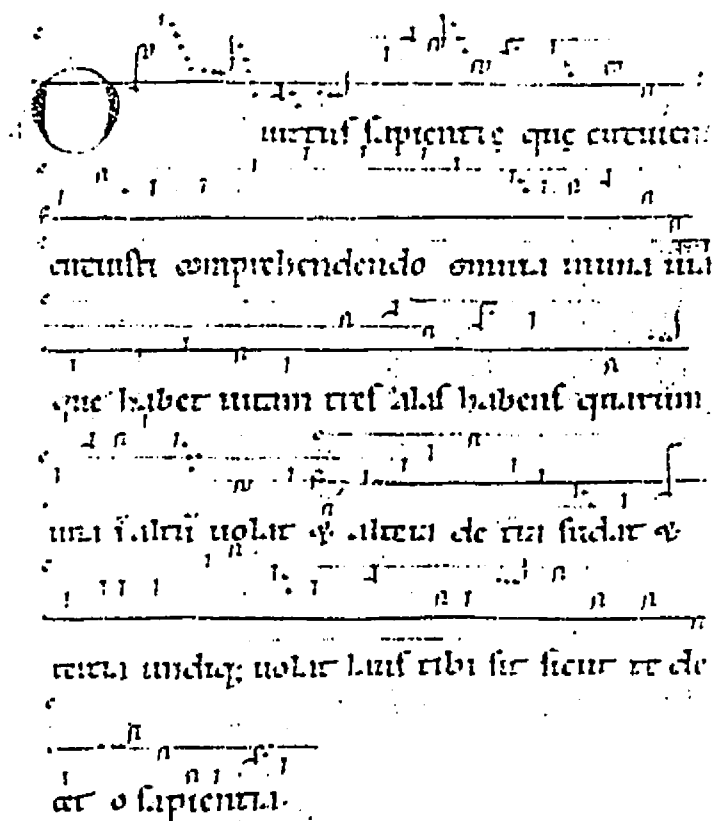 O uirtus sapientię quę circuiens
circuisti comprehendendo omnia in una uia
que habet uitam tres alas habens quarum
una ī altū uolat & altera de t̄ra sudat &
tercia undiq; uolat laus tibi sit sicut te de
cet o sapientia.